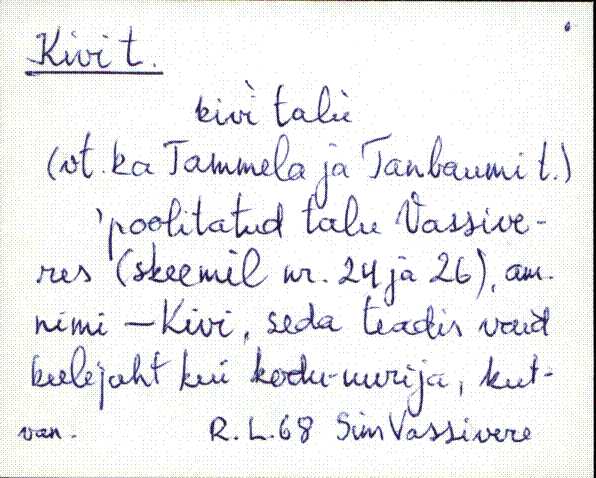 Kivi t.
kivì talu
(vt. ka Tammela ja Tanbaumi t.)
'poolitatud talu Vassive-
res (skeemil nr. 24 ja 26), am.
nimi – Kivi, seda teadis vaid
keelejaht kui kodu-uurija, kut-
van. R. L. 68 Sim Vassivere